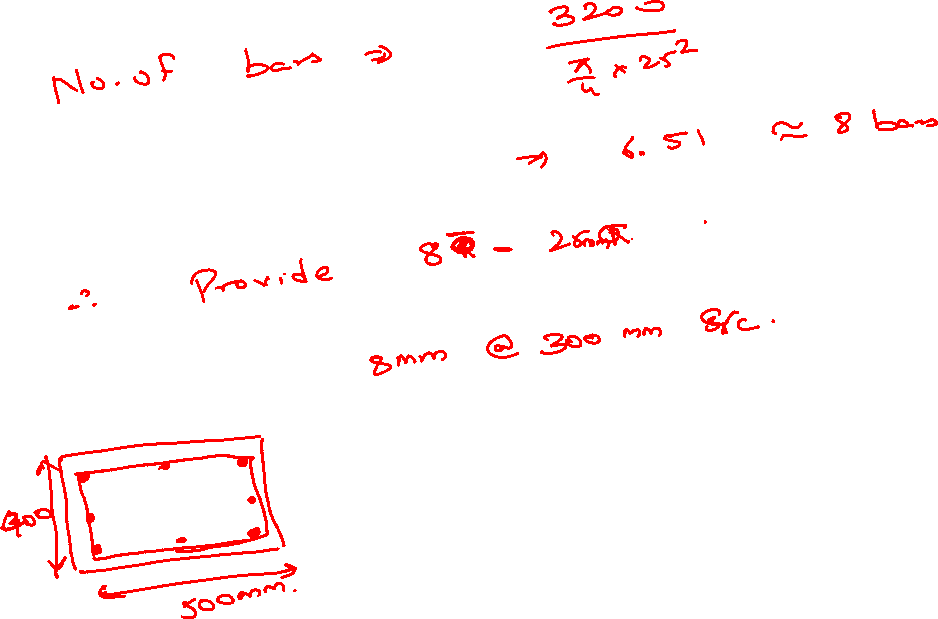 No. of bars → 3200
π/4 × 25²
→ 6.51 ≈ 8 bars
∴ Provide 8 -
8mm @ 300 mm c/c.
400
500mm.